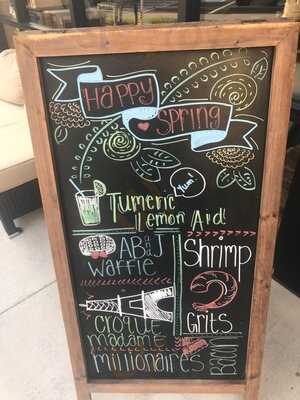 Happy
Spring
Yum!
Tumeric
Lemon Aid!
ABJ
Waffle
Shrimp
Grits
Croque
madame
millionaires
Bacon